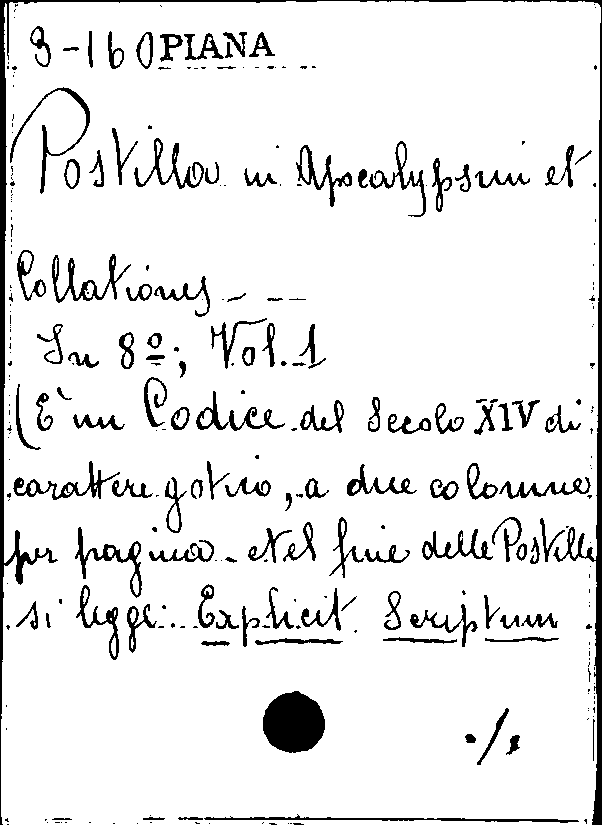 3-160 PIANA
Postilla in Apocalypsim et
Collationes - --
In 8º; Vol. 1
(È un Codice del Secolo XIV di
carattere gotico, a due colonne
per pagina - Nel fine delle Postille
si legge: Explicit Scriptum
./.